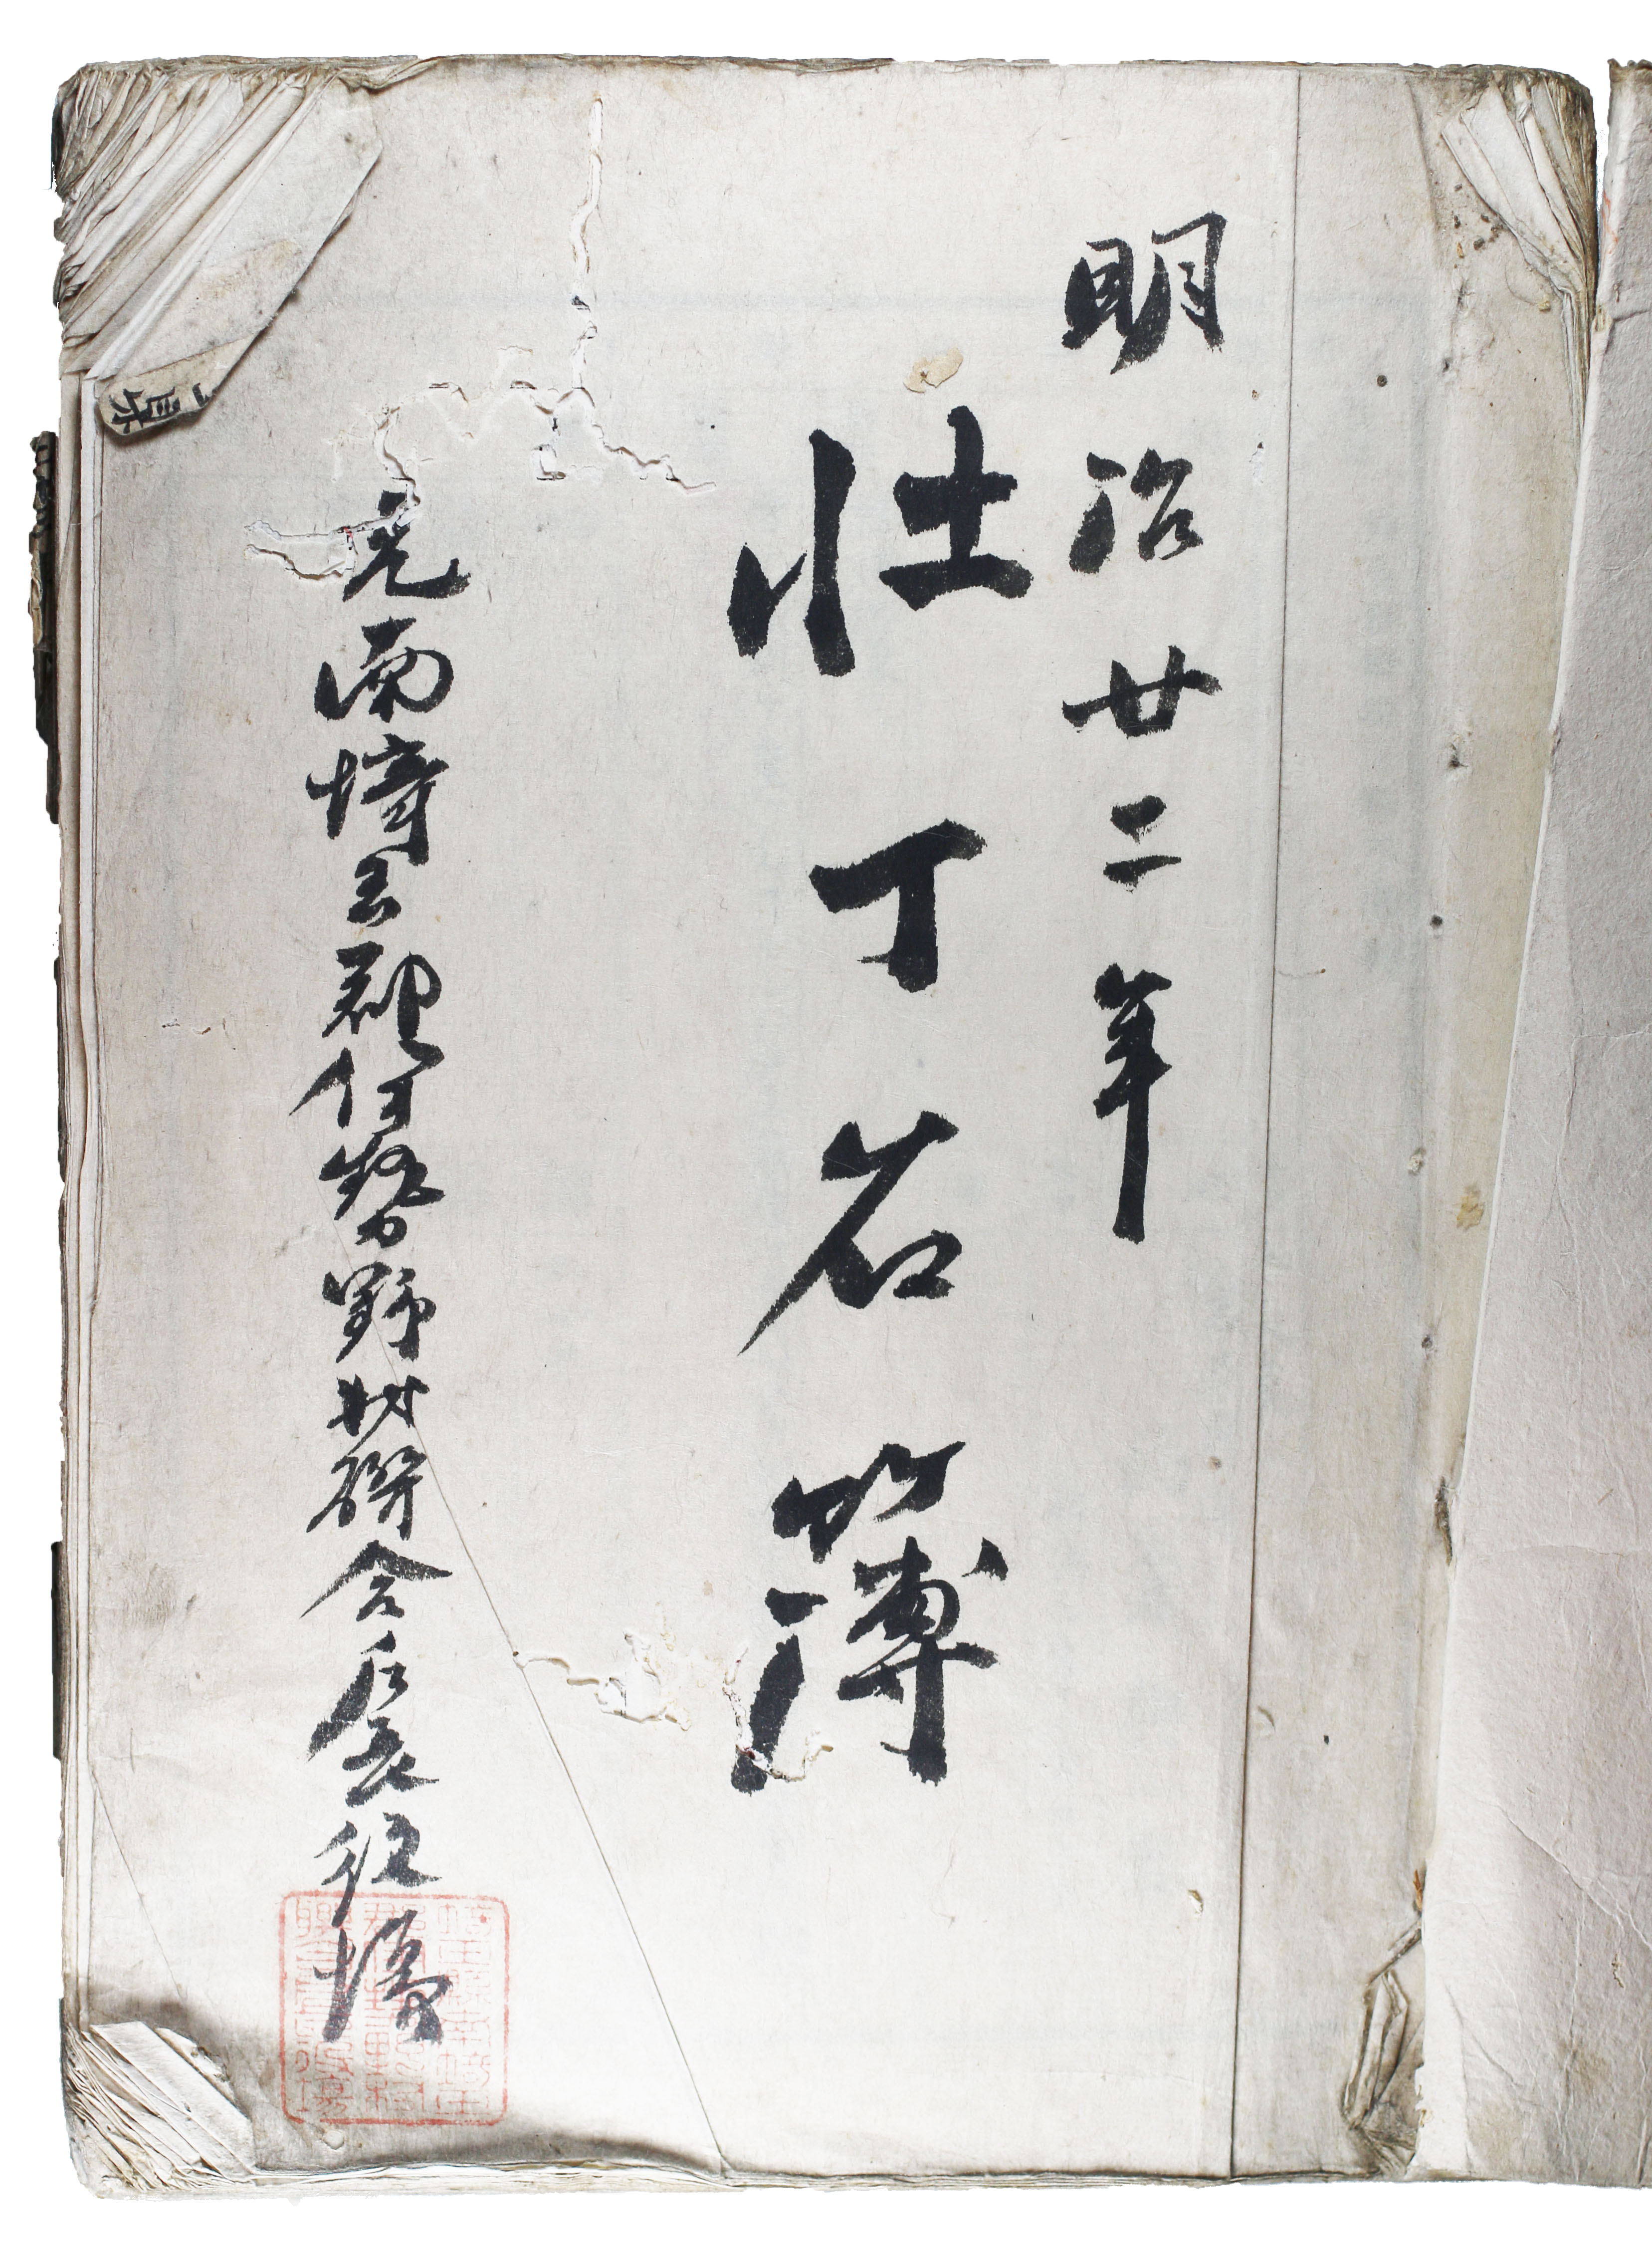 明治廿二年
壮丁名簿
元南埼玉郡伊勢野村聯合戸長役場